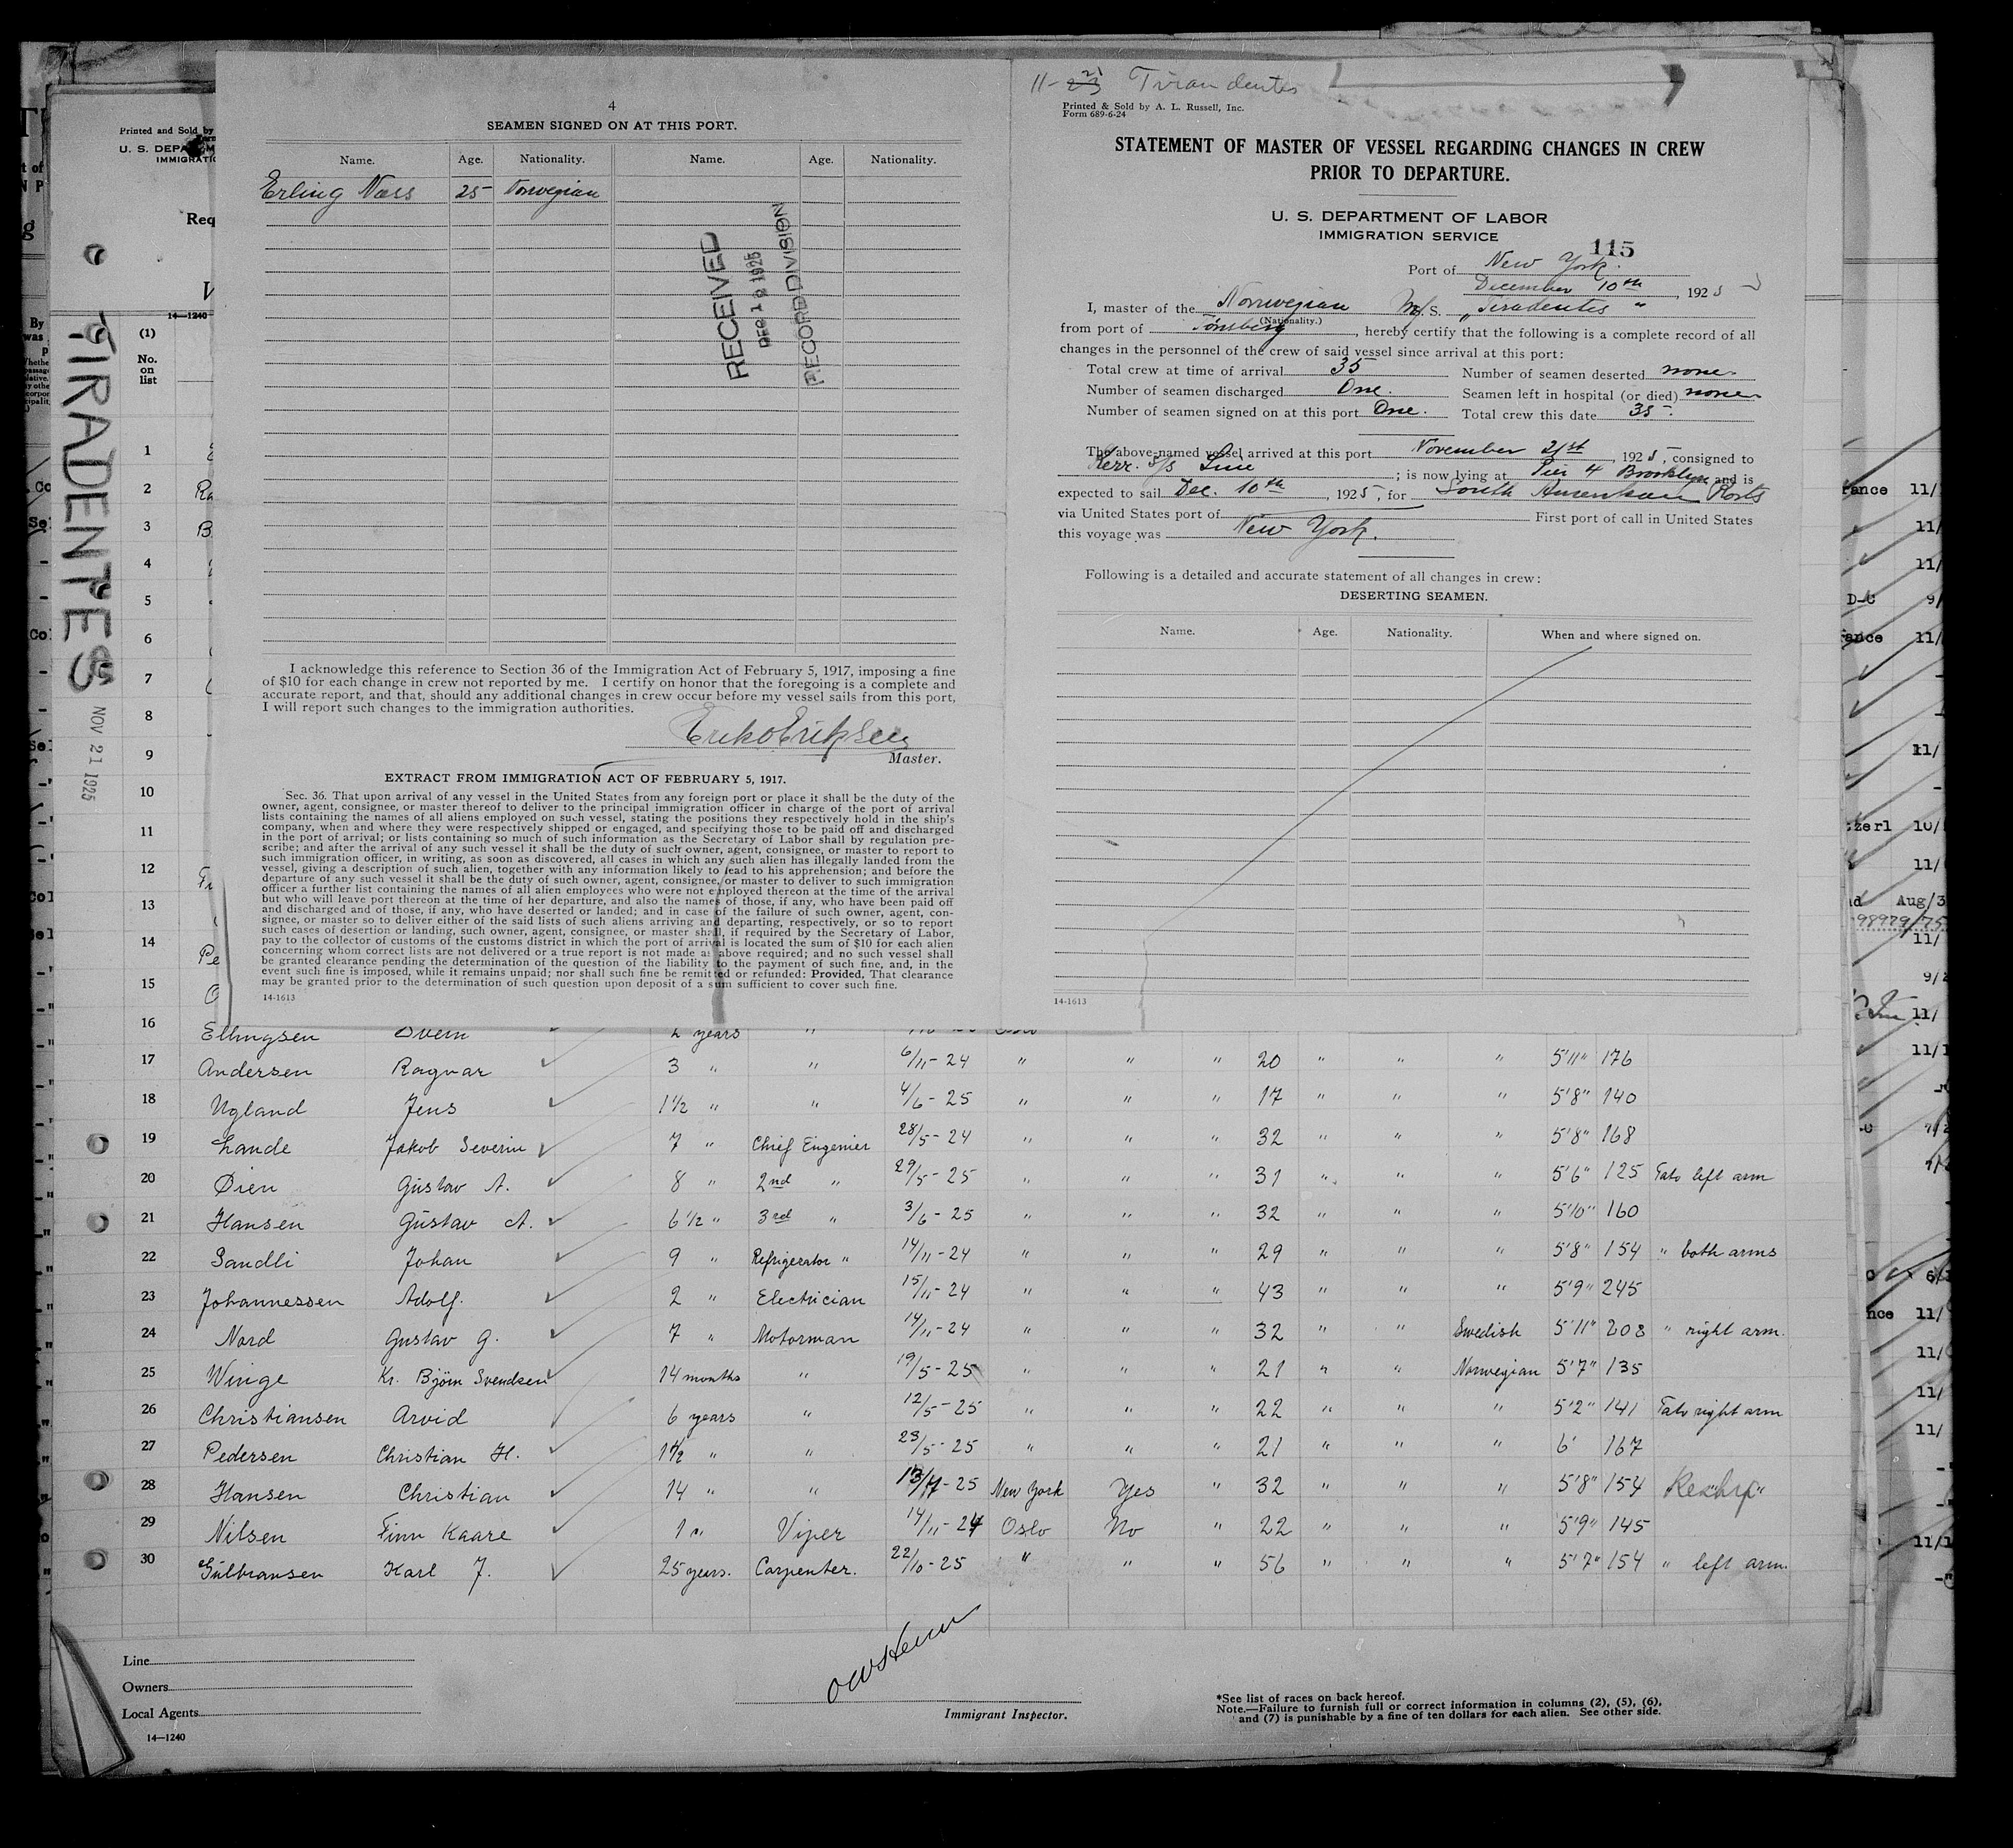 4
SEAMEN SIGNED ON AT THIS PORT.
Name. Age. Nationality. Name. Age. Nationality.
Erling Næss 25 Norwegian
RECEIVED
DEC 12 1925
RECORD DIVISION
I acknowledge this reference to Section 36 of the Immigration Act of February 5, 1917, imposing a fine
of $10 for each change in crew not reported by me. I certify on honor that the foregoing is a complete and
accurate report, and that, should any additional changes in crew occur before my vessel sails from this port,
I will report such changes to the immigration authorities.
Master.
EXTRACT FROM IMMIGRATION ACT OF FEBRUARY 5, 1917.
Sec. 36. That upon arrival of any vessel in the United States from any foreign port or place it shall be the duty of the
owner, agent, consignee, or master thereof to deliver to the principal immigration officer in charge of the port of arrival
lists containing the names of all aliens employed on such vessel, stating the positions they respectively hold in the ship's
company, when and where they were respectively shipped or engaged, and specifying those to be paid off and discharged
in the port of arrival; or lists containing so much of such information as the Secretary of Labor shall by regulation pre-
scribe; and after the arrival of any such vessel it shall be the duty of such owner, agent, consignee, or master to report to
such immigration officer, in writing, as soon as discovered, all cases in which any such alien has illegally landed from the
vessel, giving a description of such alien, together with any information likely to lead to his apprehension; and before the
departure of any such vessel it shall be the duty of such owner, agent, consignee, or master to deliver to such immigration
officer a further list containing the names of all alien employees who were not employed thereon at the time of the arrival
but who will leave port thereon at the time of her departure, and also the names of those, if any, who have been paid off
and discharged and of those, if any, who have deserted or landed; and in case of the failure of such owner, agent, con-
signee, or master so to deliver either of the said lists of such aliens arriving and departing, respectively, or so to report
such cases of desertion or landing, such owner, agent, consignee, or master shall, if required by the Secretary of Labor,
pay to the collector of customs of the customs district in which the port of arrival is located the sum of $10 for each alien
concerning whom correct lists are not delivered or a true report is not made as above required; and no such vessel shall
be granted clearance pending the determination of the question of the liability to the payment of such fine, and, in the
event such fine is imposed, while it remains unpaid; nor shall such fine be remitted or refunded: Provided, That clearance
may be granted prior to the determination of such question upon deposit of a sum sufficient to cover such fine.
14-1613
Tirandentes
Printed & Sold by A. L. Russell, Inc.
Form 689-6-24
STATEMENT OF MASTER OF VESSEL REGARDING CHANGES IN CREW
PRIOR TO DEPARTURE.
U. S. DEPARTMENT OF LABOR
IMMIGRATION SERVICE
115
Port of New York.
December 10th, 1925
I, master of the Norwegian M/S. "Tiradentes"
(Nationality.)
from port of Tønsberg, hereby certify that the following is a complete record of all
changes in the personnel of the crew of said vessel since arrival at this port:
Total crew at time of arrival 35 Number of seamen deserted none
Number of seamen discharged One. Seamen left in hospital (or died) none
Number of seamen signed on at this port One. Total crew this date 35
The above-named vessel arrived at this port November 21st, 1925, consigned to
Kerr. S/S Line; is now lying at Pier 4 Brooklyn and is
expected to sail Dec. 10th, 1925, for South American Ports
via United States port of First port of call in United States
this voyage was New York.
Following is a detailed and accurate statement of all changes in crew:
DESERTING SEAMEN.
Name. Age. Nationality. When and where signed on.
14-1613
Printed and Sold by
U. S. DEPA
IMMIGRATIO
Req
14—1240
(1)
No.
on
list
TIRADENTES
NOV 21 1925
1
2
3
4
5
6
7
8
9
10
11
12
13
14
15
16 Ellingsen 2 years "
17 Andersen Ragnar 3 " " 6/11-24 " " " 20 " " " 5'11" 176
18 Ugland Jens 1½ " " 4/6-25 " " " 17 " " " 5'8" 140
19 Lande Jakob Severin 7 " Chief Engenier 28/5-24 " " " 32 " " " 5'8" 168
20 Øien Gustav A. 8 " 2nd " 29/5-25 " " " 31 " " " 5'6" 125 Tato left arm
21 Hansen Gustav A. 6½ " 3rd " 3/6-25 " " " 32 " " " 5'10" 160
22 Sandli Johan 9 " Refrigerator " 14/11-24 " " " 29 " " " 5'8" 154 " both arms
23 Johannessen Adolf. 2 " Electrician 15/11-24 " " " 43 " " " 5'9" 245
24 Nord Gustav G. 7 " Motorman 14/11-24 " " " 32 " " Swedish 5'11" 208 " right arm.
25 Winge Kr. Bjørn Svendsen 14 months " 19/5-25 " " " 21 " " Norwegian 5'7" 135
26 Christiansen Arvid 6 years " 12/5-25 " " " 22 " " " 5'2" 141 Tato right arm
27 Pedersen Christian H. 1½ " " 23/5-25 " " " 21 " " " 6' 167
28 Hansen Christian 14 " " -25 New York Yes " 32 " " " 5'8" 154
29 Nilsen Finn Kaare 1 " Viper 14/11-24 Oslo No " 22 " " " 5'9" 145
30 Gulbransen Karl J. 25 years. Carpenter. 22/10-25 " " " 56 " " " 5'7" 154 " left arm.
Line
Owners
Local Agents
14—1240
Immigrant Inspector.
*See list of races on back hereof.
Note.—Failure to furnish full or correct information in columns (2), (5), (6),
and (7) is punishable by a fine of ten dollars for each alien. See other side.